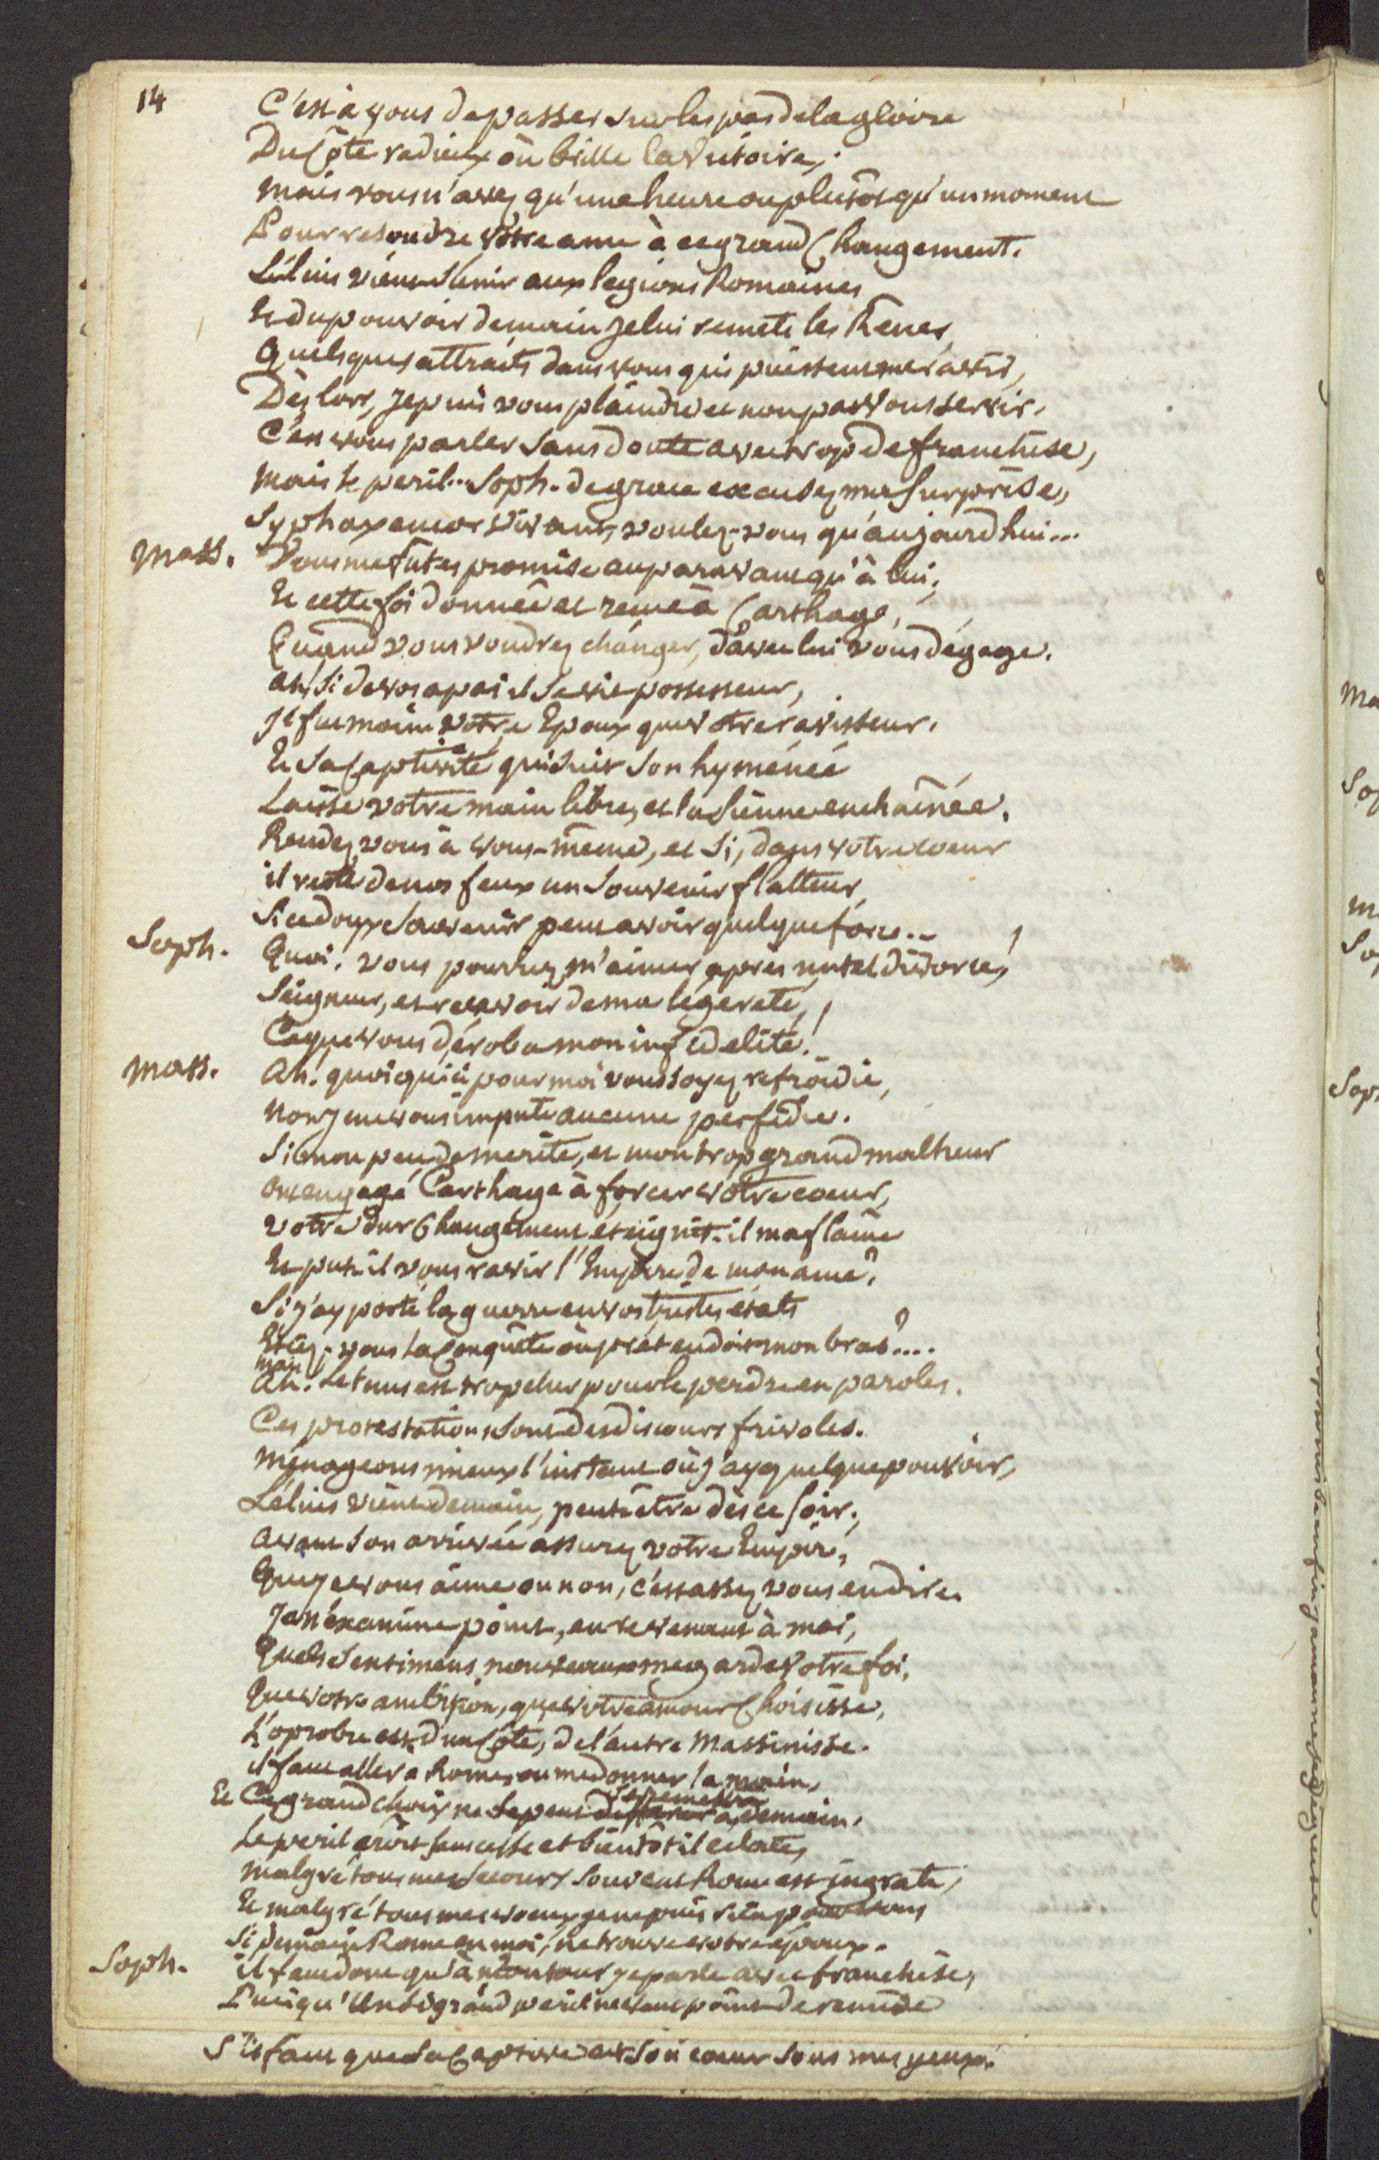 14
C'est à vous de passer sur les pas de la gloire
Du Côté radieux où brille la Victoire;
Mais vous n'avez qu'une heure ou plutôt qu'un moment
Pour resoudre Vôtre ame à ce grand Changement.
Lélius vient s'unir aux legions Romaines
Et du pouvoir demain je lui remets les Rênes,
Quelsques attraits dans vous qui puissent me ravir,
Dès lors, je puis vous plaindre et non pas Vous servir.
C'est vous parler sans doute avec trop de franchise,
Mais le peril.. Soph. de grace excusez ma surprise,
Syphax encor vivant, voulez-vous qu'aujourd'hui...
Mass. Vous me futes promise auparavant qu'à lui;
Et cette foi donnée et reçue à Carthage,
Quand vous voudrez changer, d'avec lui vous dégage.
ah! Si de vos apas il se vit possesseur,
Il fut moins votre Epoux que votre ravisseur.
Et sa Captivité qui suit son hyménée
Laisse votre main libre, et la sienne enchaînée.
Rendez vous à vous-même, et si, dans votre coeur
il reste de nos feux un souvenir flatteur,
Si ce doux souvenir peut avoir quelque force..
Soph. Quoi! vous pourriez m'aimer après un tel divorce!
Seigneur, et recevoir de ma légereté,
Ce que vous déroba mon infidelité!
Mass. Ah! quoiqu'ici pour moi vous soyez refroidie,
Non je ne vous impute aucune perfidie.
Si mon peu de merite, et mon trop grand malheur
Ont engagé Carthage à forcer votre coeur,
votre dur Changement eteignit-il ma flame
Et put-il vous ravir l'Empire de mon ame?
Si j'ay porté la guerre en vos tristes états
Etiez-vous la Conquête où prétendoit mon bras?....
mais
Ah! Le tems est trop cher pour le perdre en paroles.
Ces protestations sont des discours frivoles.
Ménageons mieux l'instant où j'ay quelque pouvoir,
Lélius vient demain, peut-être dès ce soir;
Avant son arrivée assurez votre Empire,
Que je vous aime ou non, c'est assez vous en dire.
Je n'examine point, en revenant à moi,
Quels sentimens nouveaux me garde votre foi,
Que votre ambition, que votre amour Choisisse,
L'oprobre est d'un Côté, de l'autre Massinisse.
il faut aller à Rome, ou me donner la main,
remettre
Et Ce grand choix ne se peut differer à demain.
Le peril croît sans cesse et bientôt il eclate,
Malgré tous mes secours souvent Rome est ingrate,
Et malgré tous mes voeux je ne puis rien pour vous
Si demain Rome en moi, ne trouve votre époux.
Soph. il faut donc qu'à mon tour je parle avec franchise,
Puisqu'Un si grand peril ne veut point de remise
S'il faut que sa Captive ait son coeur sous mes yeux.